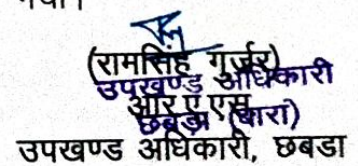 (रामसिंह गुर्जर)
उपखण्ड अधिकारी
आर ए एस
छबड़ा (बारां)
उपखण्ड अधिकारी, छबडा